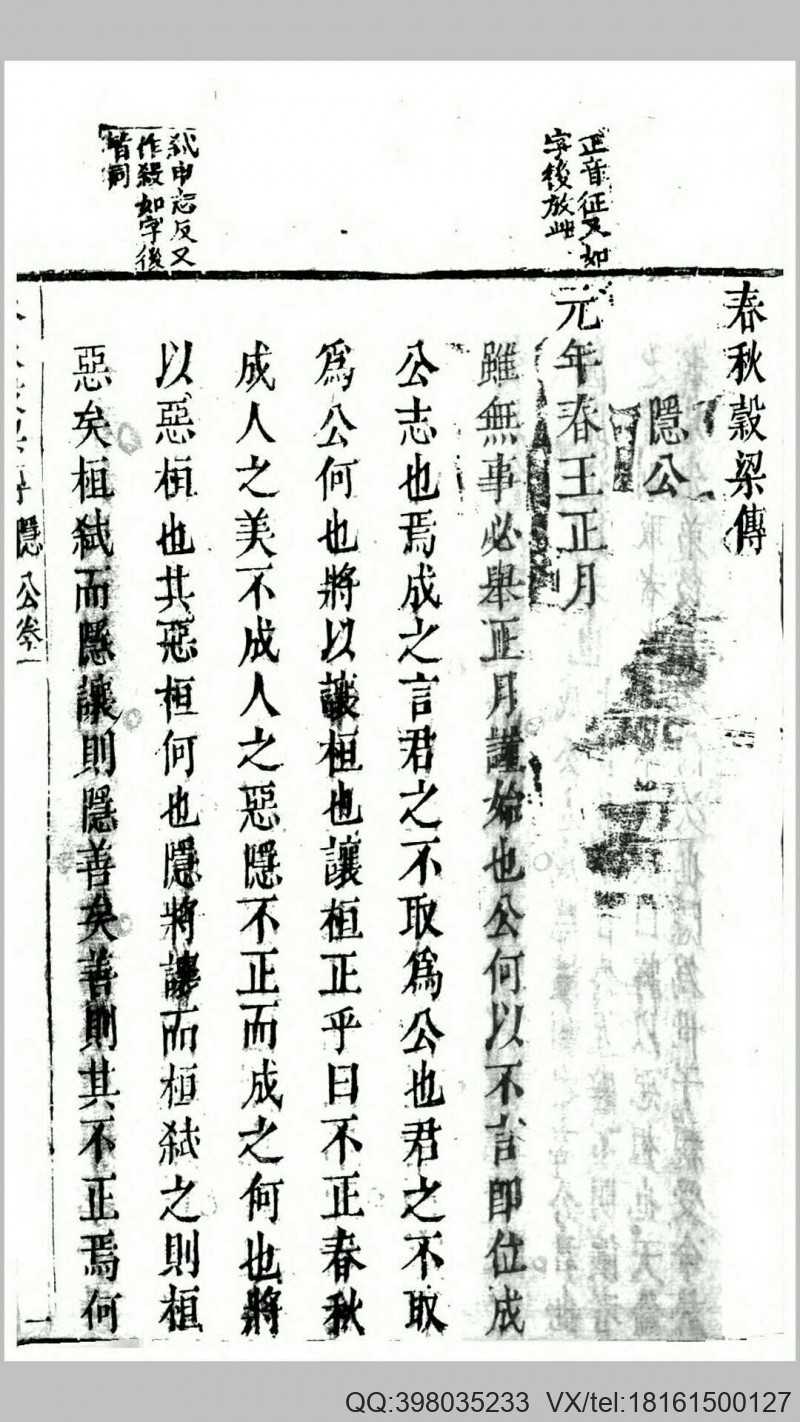 正音征又如
字後放此
弑申志反又
作殺如字後
皆同
春秋穀梁傳
隱公
元年春王正月
雖無事必舉正月謹始也公何以不言即位成
公志也焉成之言君之不取爲公也君之不取
爲公何也將以讓桓也讓桓正乎曰不正春秋
成人之美不成人之惡隱不正而成之何也將
以惡桓也其惡桓何也隱將讓而桓弑之則桓
惡矣桓弑而隱讓則隱善矣善則其不正焉何
隱公卷一
一
QQ:398035233 VX/tel:18161500127